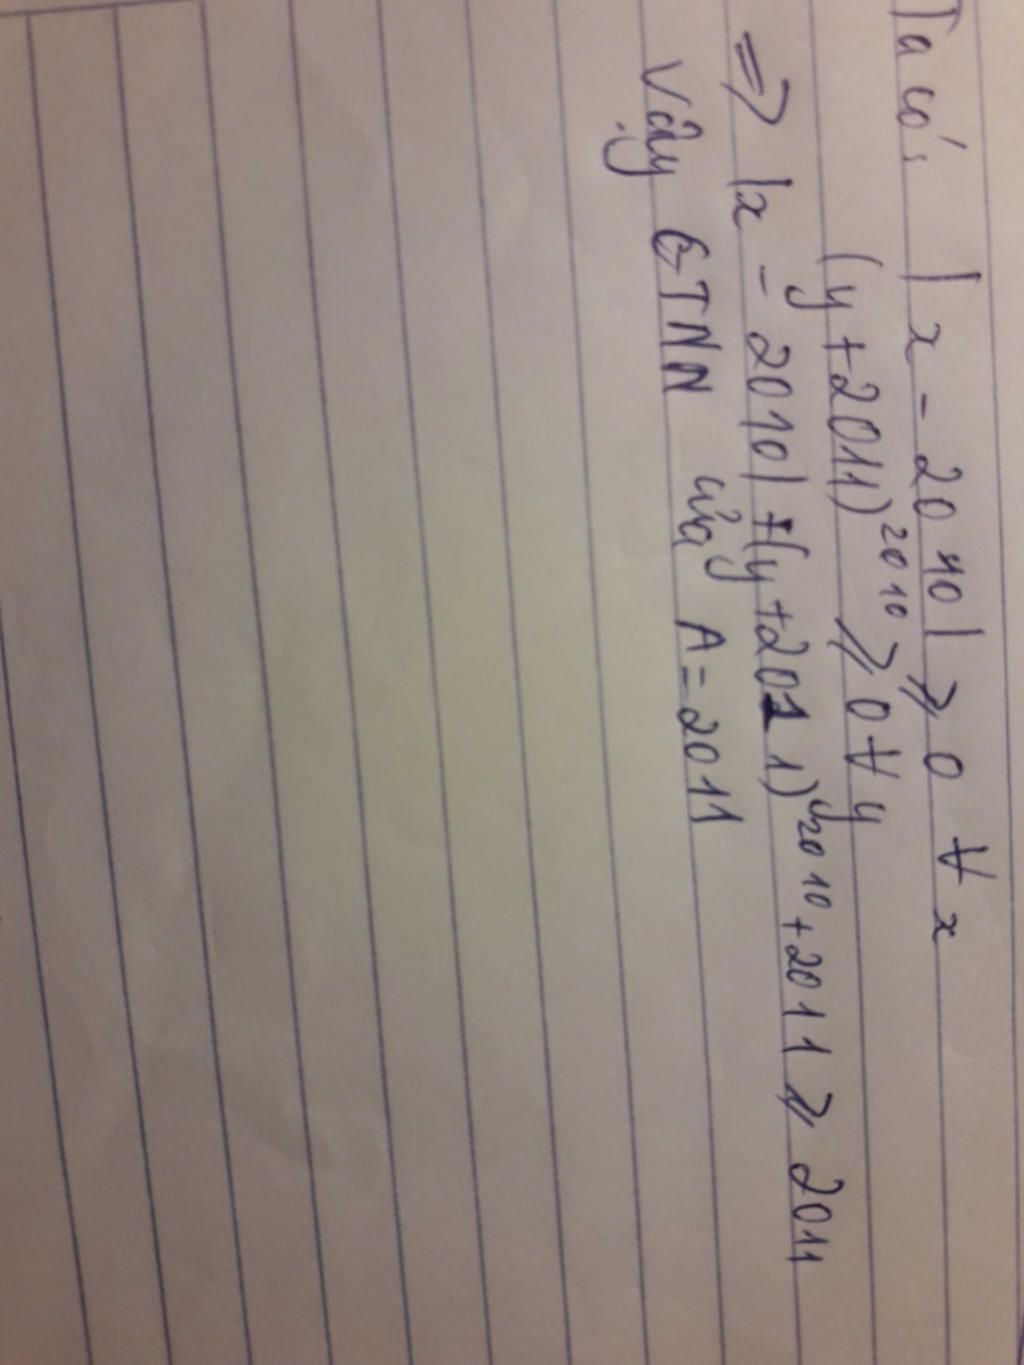 Ta có: |x - 2010| ⩾ 0 ∀ x
(y + 2011)^2010 ⩾ 0 ∀ y
=> |x - 2010| + (y + 2011)^2010 + 2011 ⩾ 2011
Vậy GTNN của A = 2011